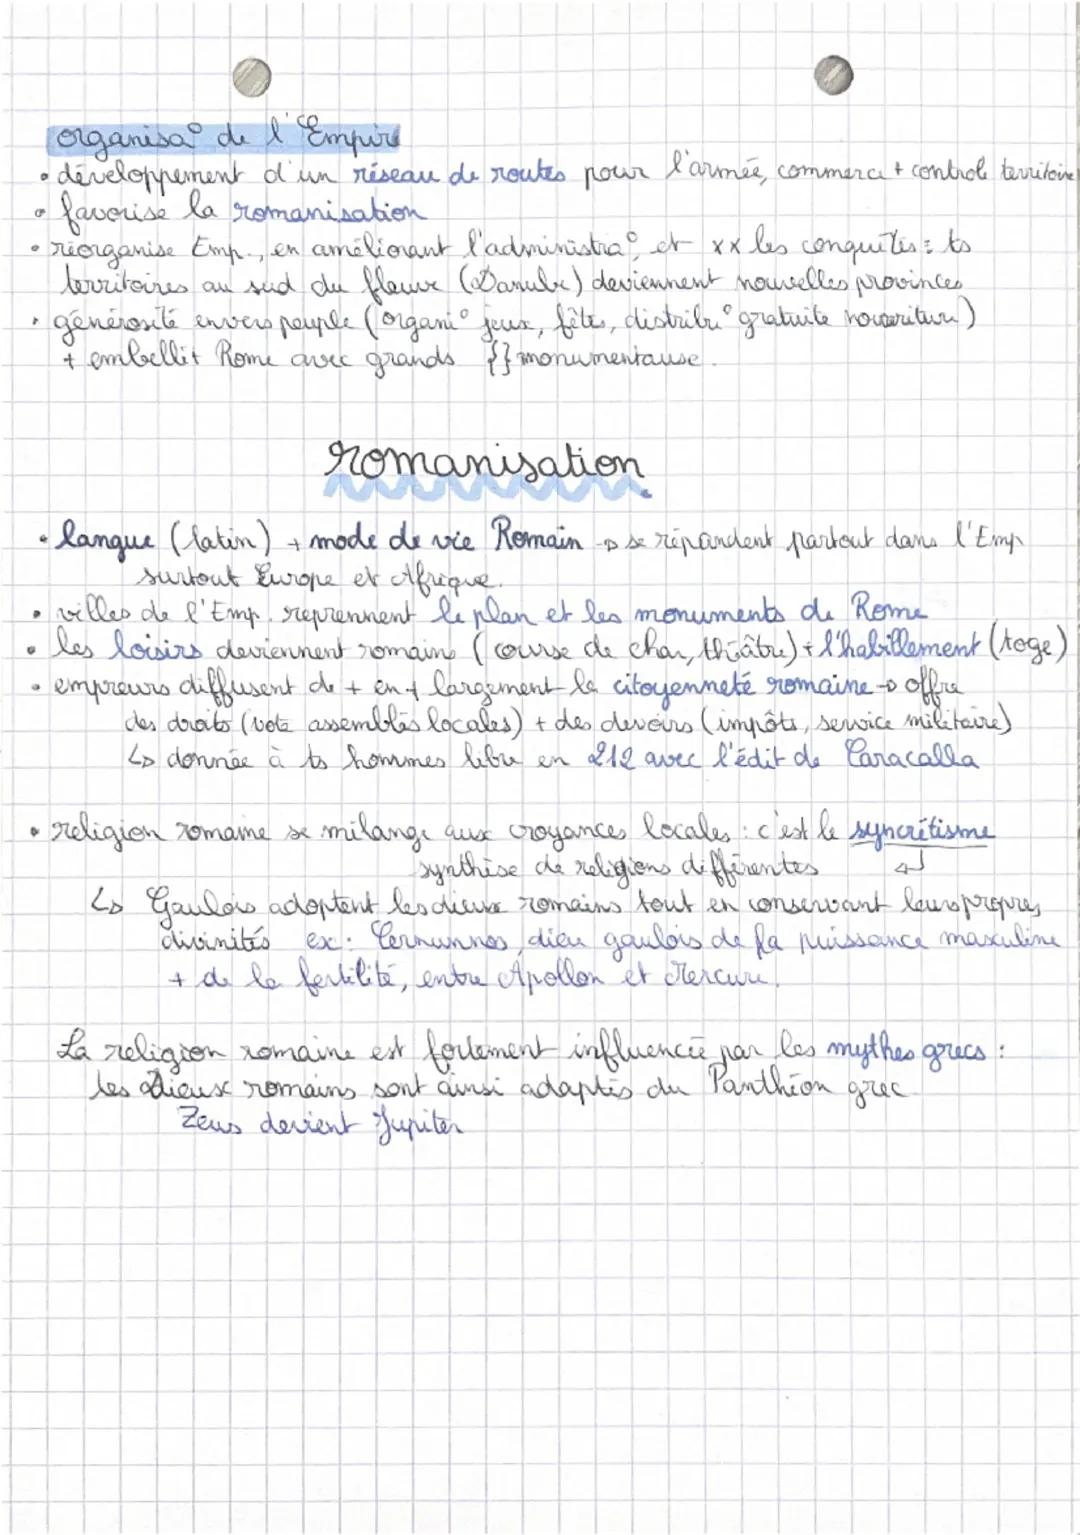 organisa° de l'Empire
• développement d'un réseau de routes pour l'armée, commerce + controle territoire
• favorise la romanisation
• réorganise Emp., en améliorant l'administra°, et xx les conquêtes : ts
territoires au sud du fleuve (Danube) deviennent nouvelles provinces
• générosité envers peuple (organi° jeux, fêtes, distribu° gratuite nourriture)
+ embellit Rome avec grands {} monumentause.
romanisation
• langue (latin) + mode de vie Romain → se répandent partout dans l'Emp
surtout Europe et Afrique.
• villes de l'Emp. reprennent le plan et les monuments de Rome
• les loisirs deviennent romains (course de char, théâtre) + l'habillement (toge)
• empreurs diffusent de + en + largement la citoyenneté romaine → offre
des droits (vote assemblés locales) + des devoirs (impôts, service militaire)
↳ donnée à ts hommes libre en 212 avec l'édit de Caracalla
• religion romaine se mélange aux croyances locales : c'est le syncrétisme
synthèse de religions différentes ↲
↳ Gaulois adoptent les dieux romains tout en conservant leurs propres
divinités ex : Cernunnos, dieu gaulois de la puissance masculine
+ de la fertilité, entre Apollon et Mercure.
La religion romaine est fortement influencée par les mythes grecs :
les Dieux romains sont ainsi adaptés du Panthéon grec
Zeus devient Jupiter